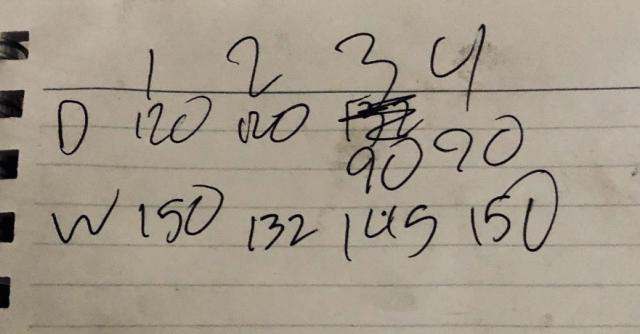 1 2 3 4
D 120 120 90 90
W 150 132 145 150